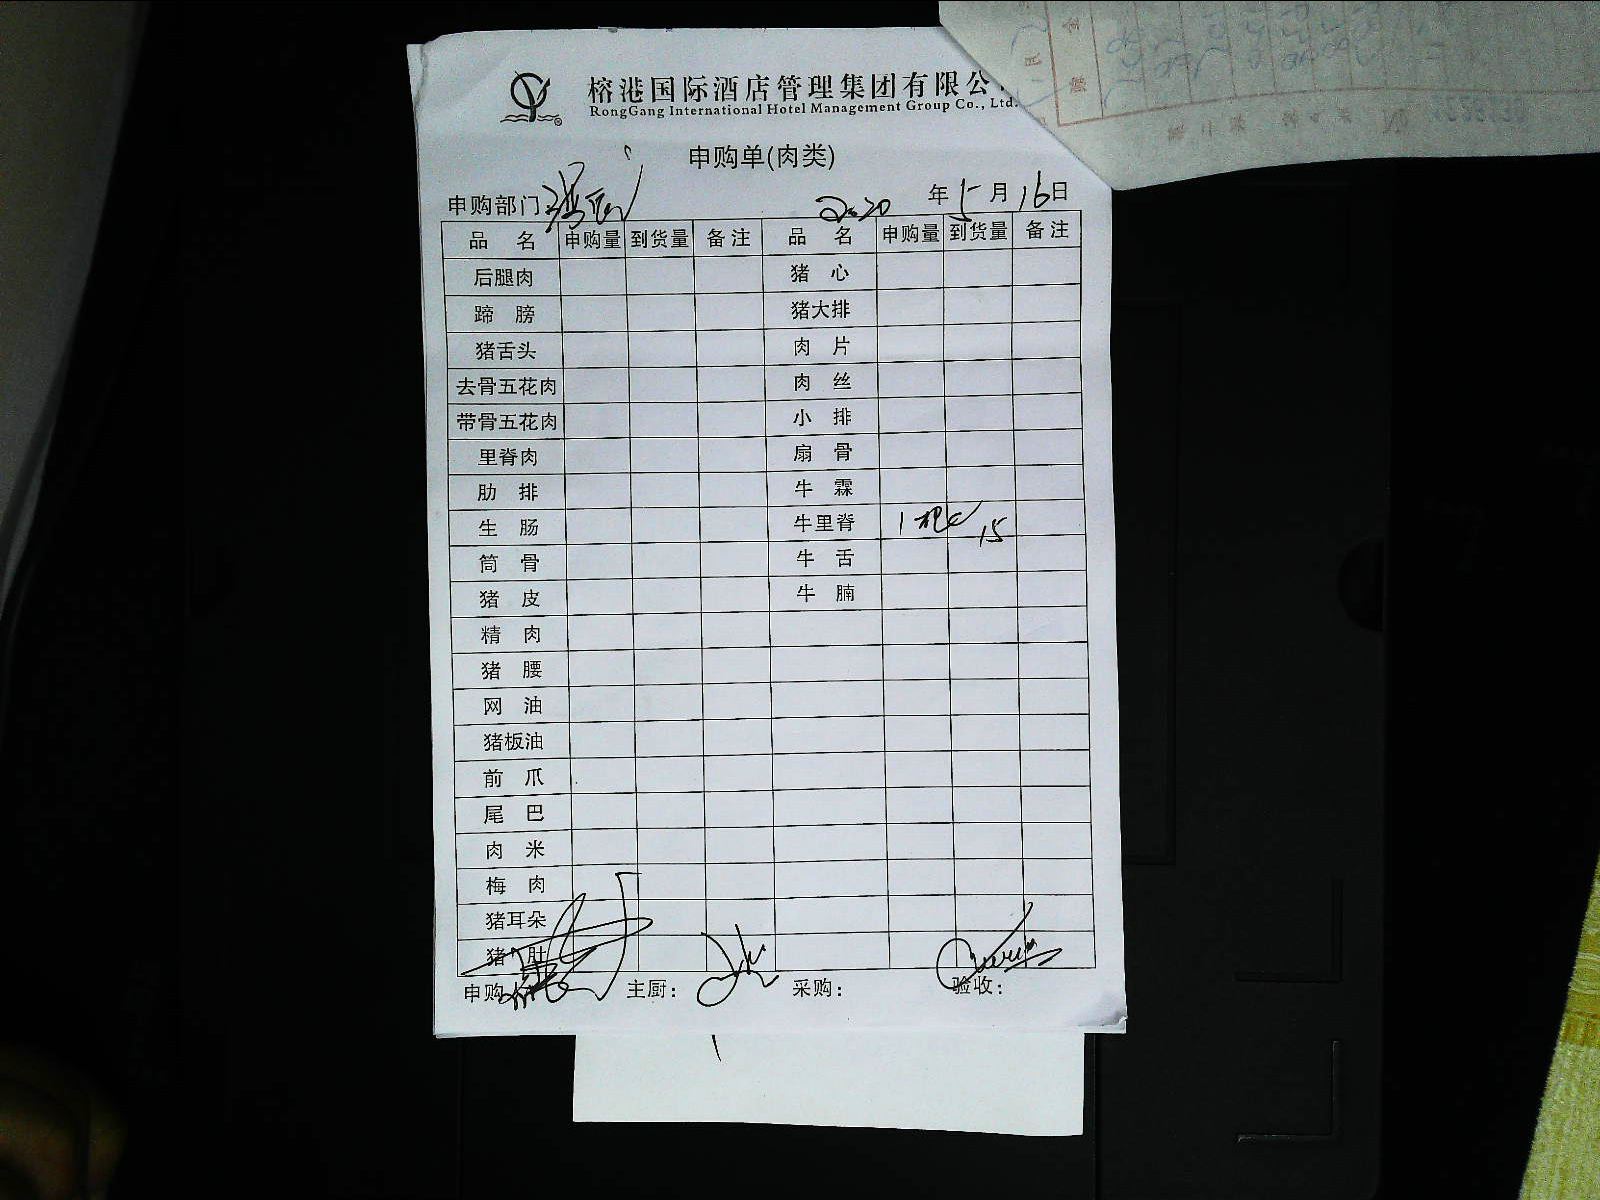 榕港国际酒店管理集团有限公
RongGang International Hotel Management Group Co., Ltd.
申购单(肉类)
申购部门: 2020 年 5 月 16 日
品 名 申购量 到货量 备注 品 名 申购量 到货量 备注
后腿肉 猪 心
蹄 膀 猪大排
猪舌头 肉 片
去骨五花肉 肉 丝
带骨五花肉 小 排
里脊肉 扇 骨
肋 排 牛 霖
生 肠 牛里脊 1根 15
筒 骨 牛 舌
猪 皮 牛 腩
精 肉
猪 腰
网 油
猪板油
前 爪
尾 巴
肉 米
梅 肉
猪耳朵
猪 肚
申购 主厨: 采购: 验收: